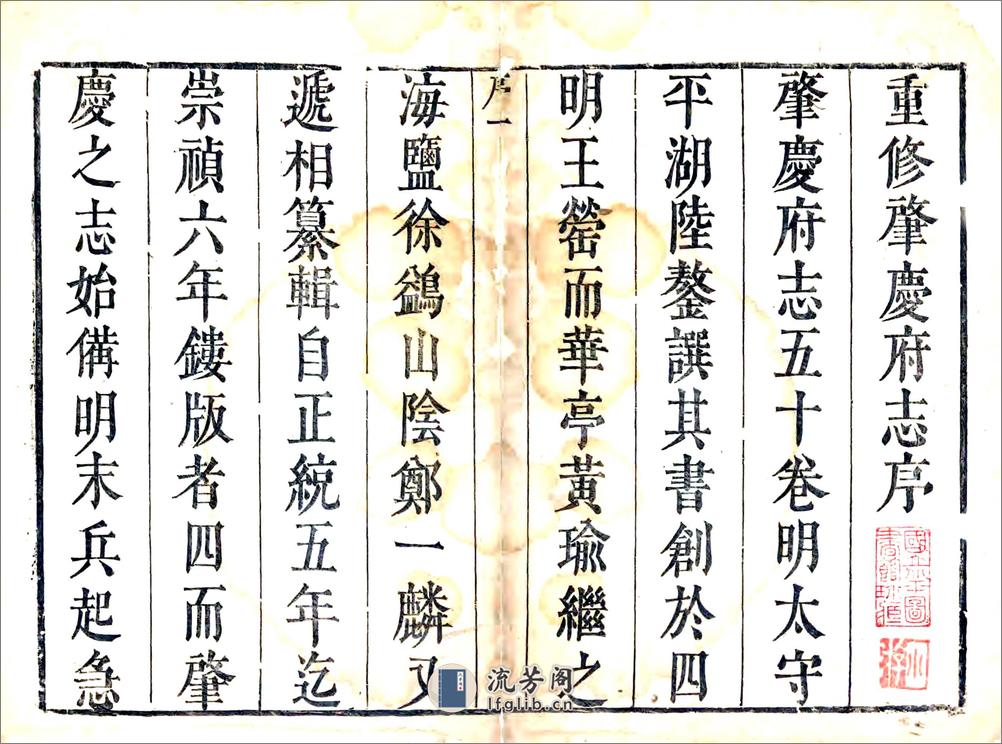 重修肇慶府志序
肇慶府志五十卷明太守
平湖陸鏊譔其書創於四
明王罃而華亭黃瑜繼之
序一
海鹽徐鷁山陰鄭一麟又
遞相纂輯自正統五年迄
崇禎六年鏤版者四而肇
慶之志始備明末兵起急
流芳阁
lfglib.cn